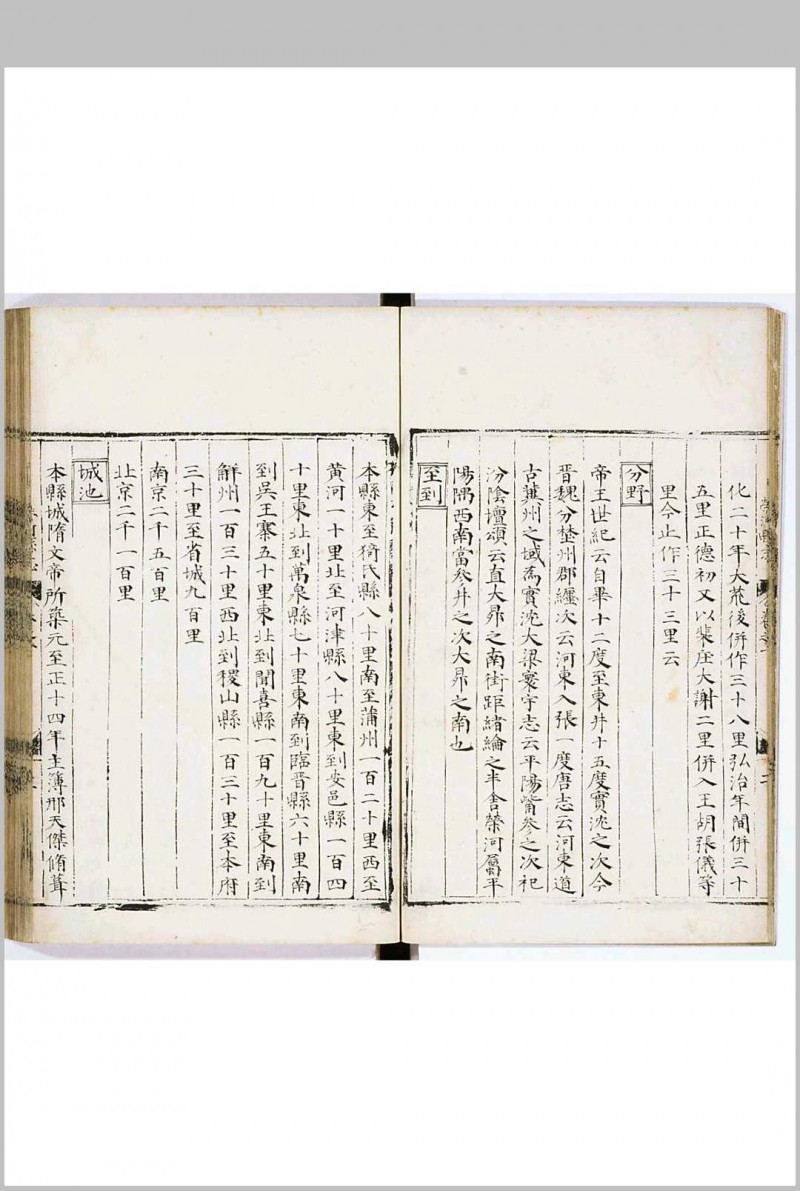 化二十年大荒後併作三十八里弘治年間併三十
五里正德初又以裴庄大謝二里併入王胡張儀等
里今止作三十三里云
分野
帝王世紀云自畢十二度至東井十五度實沈之次今
晉魏分楚州郡纏次云河東入張一度唐志云河東道
古冀州之域為實沈大梁寰宇志云平陽觜參之次祀
汾陰壇頌云直大昴之南街距緒綸之半舍榮河屬平
陽隅西南當參井之次大昴之南也
至到
本縣東至猗氏縣八十里南至蒲州一百二十里西至
黃河一十里北至河津縣八十里東到安邑縣一百四
十里東北到萬泉縣七十里東南到臨晉縣六十里南
到吳王寨五十里東北到聞喜縣一百九十里東南到
解州一百三十里西北到稷山縣一百三十里至本府
三十里至省城九百里
南京二千五百里
北京二千一百里
城池
本縣城隋文帝所築元至正十四年主簿那天傑脩葺